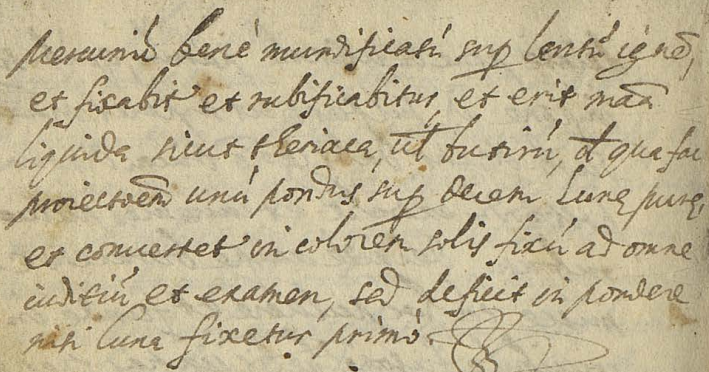 Mercuriũ benè mundificatũ sup lentũ ignẽ,
et fixabit et rubificabitur, et erit maã
liquida sicut theriaca, ut butirũ, de qua fac
proiectioẽm unũ pondus sup decem Lunę purę,
et convertet in colorem solis fixũ ad omne
iuditiũ et examen, sed deficit in pondere
nisi luna fixetur primò.